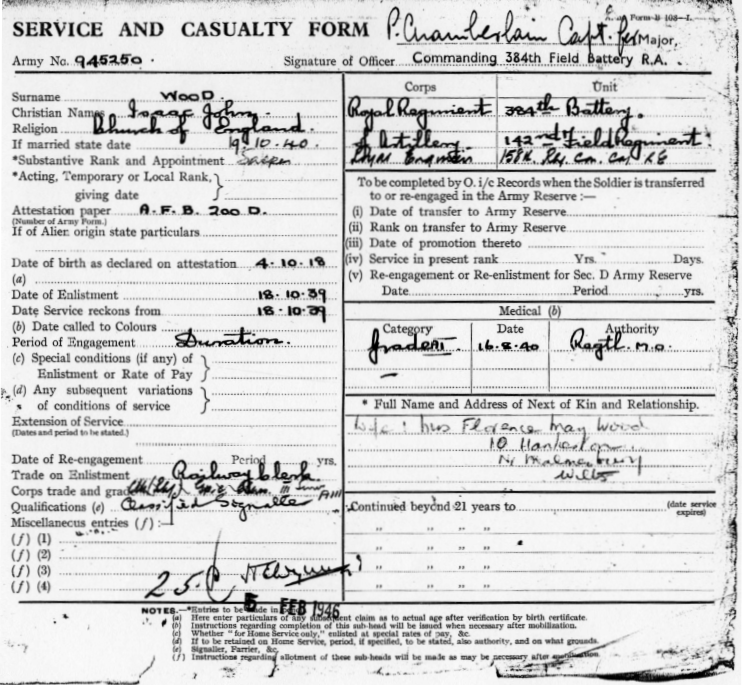 Army Form B 103—I.
SERVICE AND CASUALTY FORM P. Chamberlain Capt. for Major,
Army No. 945250. Signature of Officer Commanding 384th Field Battery R.A.
Surname WOOD.
Christian Names Isaac John.
Religion Church of England.
If married state date 19.10.40.
*Substantive Rank and Appointment
*Acting, Temporary or Local Rank,
giving date
Attestation paper A.F.B. 200 D.
(Number of Army Form.)
If of Alien origin state particulars
Date of birth as declared on attestation 4.10.18
(a)
Date of Enlistment 18.10.39
Date Service reckons from 18.10.39
(b) Date called to Colours
Period of Engagement Duration.
(c) Special conditions (if any) of
Enlistment or Rate of Pay
(d) Any subsequent variations
of conditions of service
Extension of Service
(Dates and period to be stated.)
Date of Re-engagement Period yrs.
Trade on Enlistment Railway Clerk
Corps trade and grade
Qualifications (e) Classified Signaller
Miscellaneous entries (f) :—
(f) (1)
(f) (2)
(f) (3)
(f) (4)
5 FEB 1946
Corps Unit
Royal Regiment 384th Battery.
of Artillery. 142nd Field Regiment
To be completed by O. i/c Records when the Soldier is transferred
to or re-engaged in the Army Reserve :—
(i) Date of transfer to Army Reserve
(ii) Rank on transfer to Army Reserve
(iii) Date of promotion thereto
(iv) Service in present rank Yrs. Days.
(v) Re-engagement or Re-enlistment for Sec. D Army Reserve
Date Period yrs.
Medical (b)
Category Date Authority
Grade A1. 16.8.40 Regtl. M.O.
* Full Name and Address of Next of Kin and Relationship.
Wife: Mrs Florence May Wood
10 Hankerton
Nr Malmesbury
Wilts
Continued beyond 21 years to (date service expires)
" " "
" " "
" " "
" " "
NOTES.—*Entries to be made in
(a) Here enter particulars of any subsequent claim as to actual age after verification by birth certificate.
(b) Instructions regarding completion of this sub-head will be issued when necessary after mobilization.
(c) Whether "for Home Service only," enlisted at special rates of pay, &c.
(d) If to be retained on Home Service, period, if specified, to be stated, also authority, and on what grounds.
(e) Signaller, Farrier, &c.
(f) Instructions regarding allotment of these sub-heads will be made as may be necessary after mobilization.